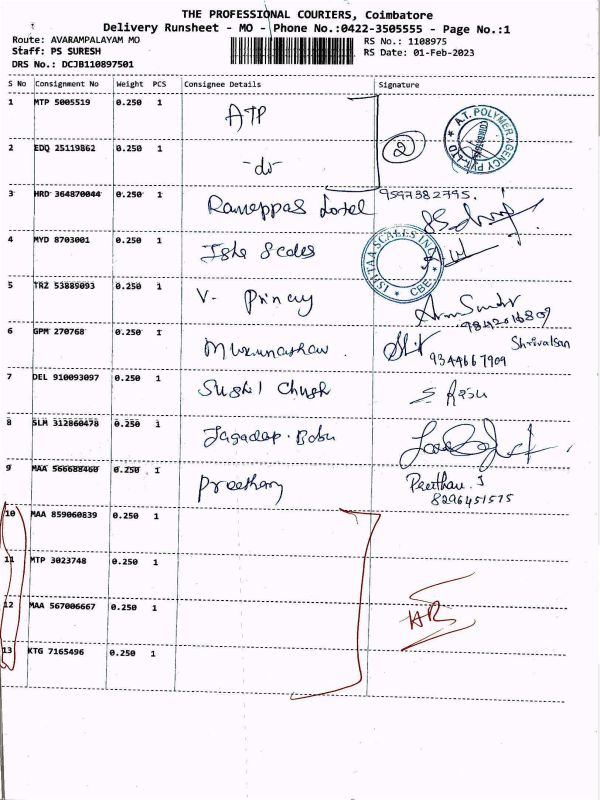 THE PROFESSIONAL COURIERS, Coimbatore
Delivery Runsheet - MO - Phone No.:0422-3505555 - Page No.:1
Route: AVARAMPALAYAM MO
RS No.: 1108975
Staff: PS SURESH
RS Date: 01-Feb-2023
DRS No.: DCJB110897501
S No Consignment No Weight PCS Consignee Details Signature
1 MTP 5005519 0.250 1 ATP
A.T. POLYMER AGENCY PVT. LTD
2
2 EDQ 25119862 0.250 1 -do-
3 HRD 364870044 0.250 1 Rameppas Lotel 9597382795.
4 MYD 8703001 0.250 1 Isha Scales
ISHTAA SCALES INC CBE
5 TRZ 53889093 0.250 1 V. Princy
9842016809
6 GPM 270768 0.250 1
Shrivalsan
9344667909
7 DEL 910093097 0.250 1 Sushil Chugh S. Rasu
8 SLM 312860478 0.250 1 Jagadap. Babu
9 MAA 566688460 0.250 1 Preetham Peetham. J
8296451575
10 MAA 859060839 0.250 1
11 MTP 3023748 0.250 1
12 MAA 567006667 0.250 1
13 KTG 7165496 0.250 1